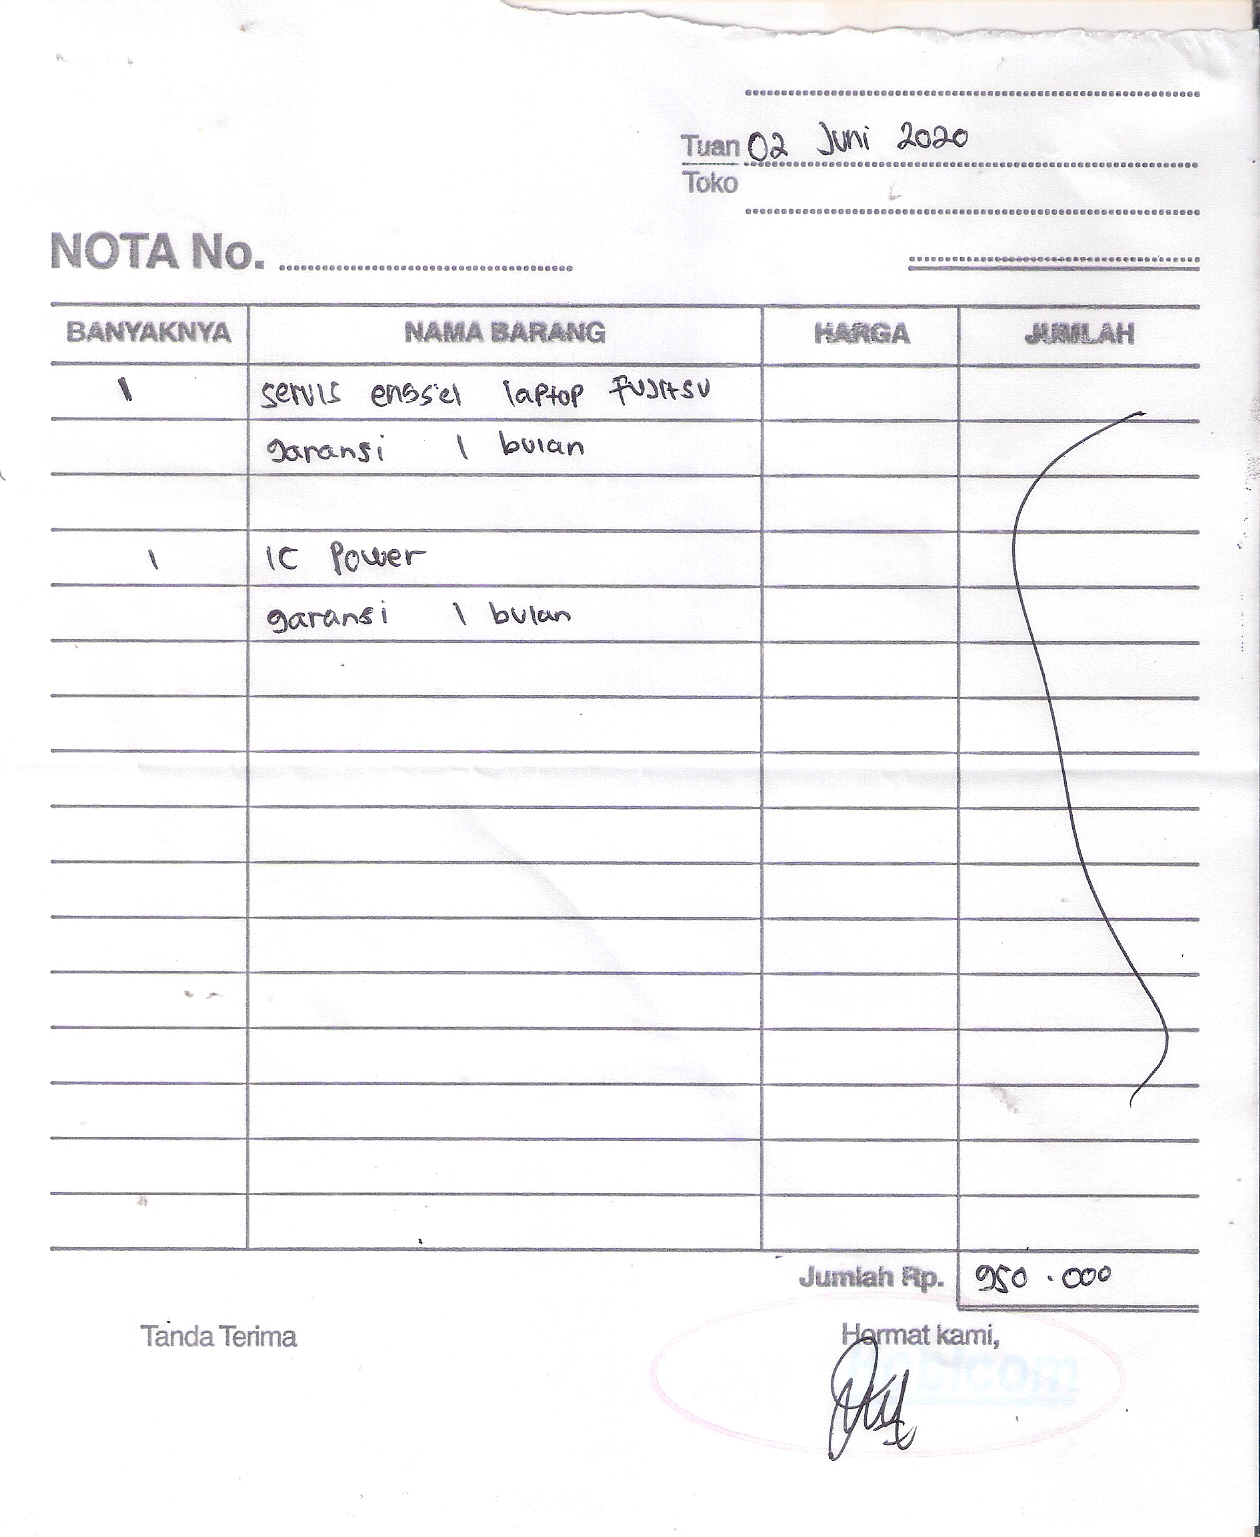 Tuan 02 Juni 2020
Toko
NOTA No.
BANYAKNYA NAMA BARANG HARGA JUMLAH
1 servis engsel laptop FUJITSU
garansi 1 bulan
1 IC Power
garansi 1 bulan
Jumlah Rp. 950.000
Tanda Terima Hormat kami,